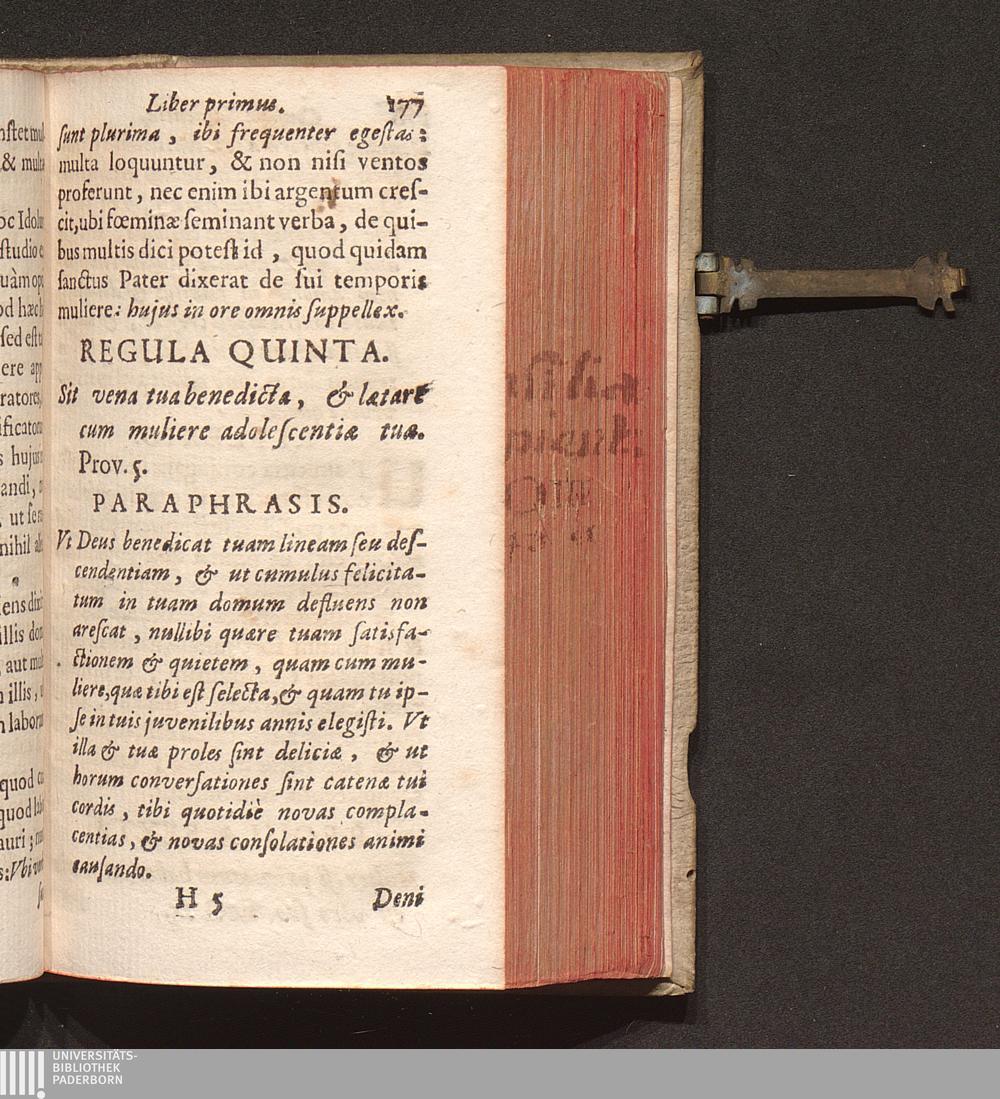 Liber primus. 177
ſunt plurima, ibi frequenter egeſtas:
multa loquuntur, & non niſi ventos
proferunt, nec enim ibi argentum creſ-
cit, ubi fœminæ ſeminant verba, de qui-
bus multis dici poteſt id, quod quidam
ſanctus Pater dixerat de ſui temporis
muliere: hujus in ore omnis ſuppellex.
REGULA QUINTA.
Sit vena tua benedicta, & lætare
cum muliere adoleſcentiæ tuæ.
Prov. 5.
PARAPHRASIS.
Vt Deus benedicat tuam lineam ſeu deſ-
cendentiam, & ut cumulus felicita-
tum in tuam domum defluens non
areſcat, nullibi quære tuam ſatisfa-
ctionem & quietem, quam cum mu-
liere, quæ tibi eſt ſelecta, & quam tu ip-
ſe in tuis juvenilibus annis elegiſti. Vt
illa & tuæ proles ſint deliciæ, & ut
horum converſationes ſint catenæ tui
cordis, tibi quotidiè novas compla-
centias, & novas conſolationes animi
cauſando.
H 5 Deni
UNIVERSITÄTS-
BIBLIOTHEK
PADERBORN